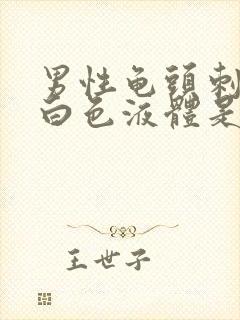 男性龟頭刺
白色液體是
王世子